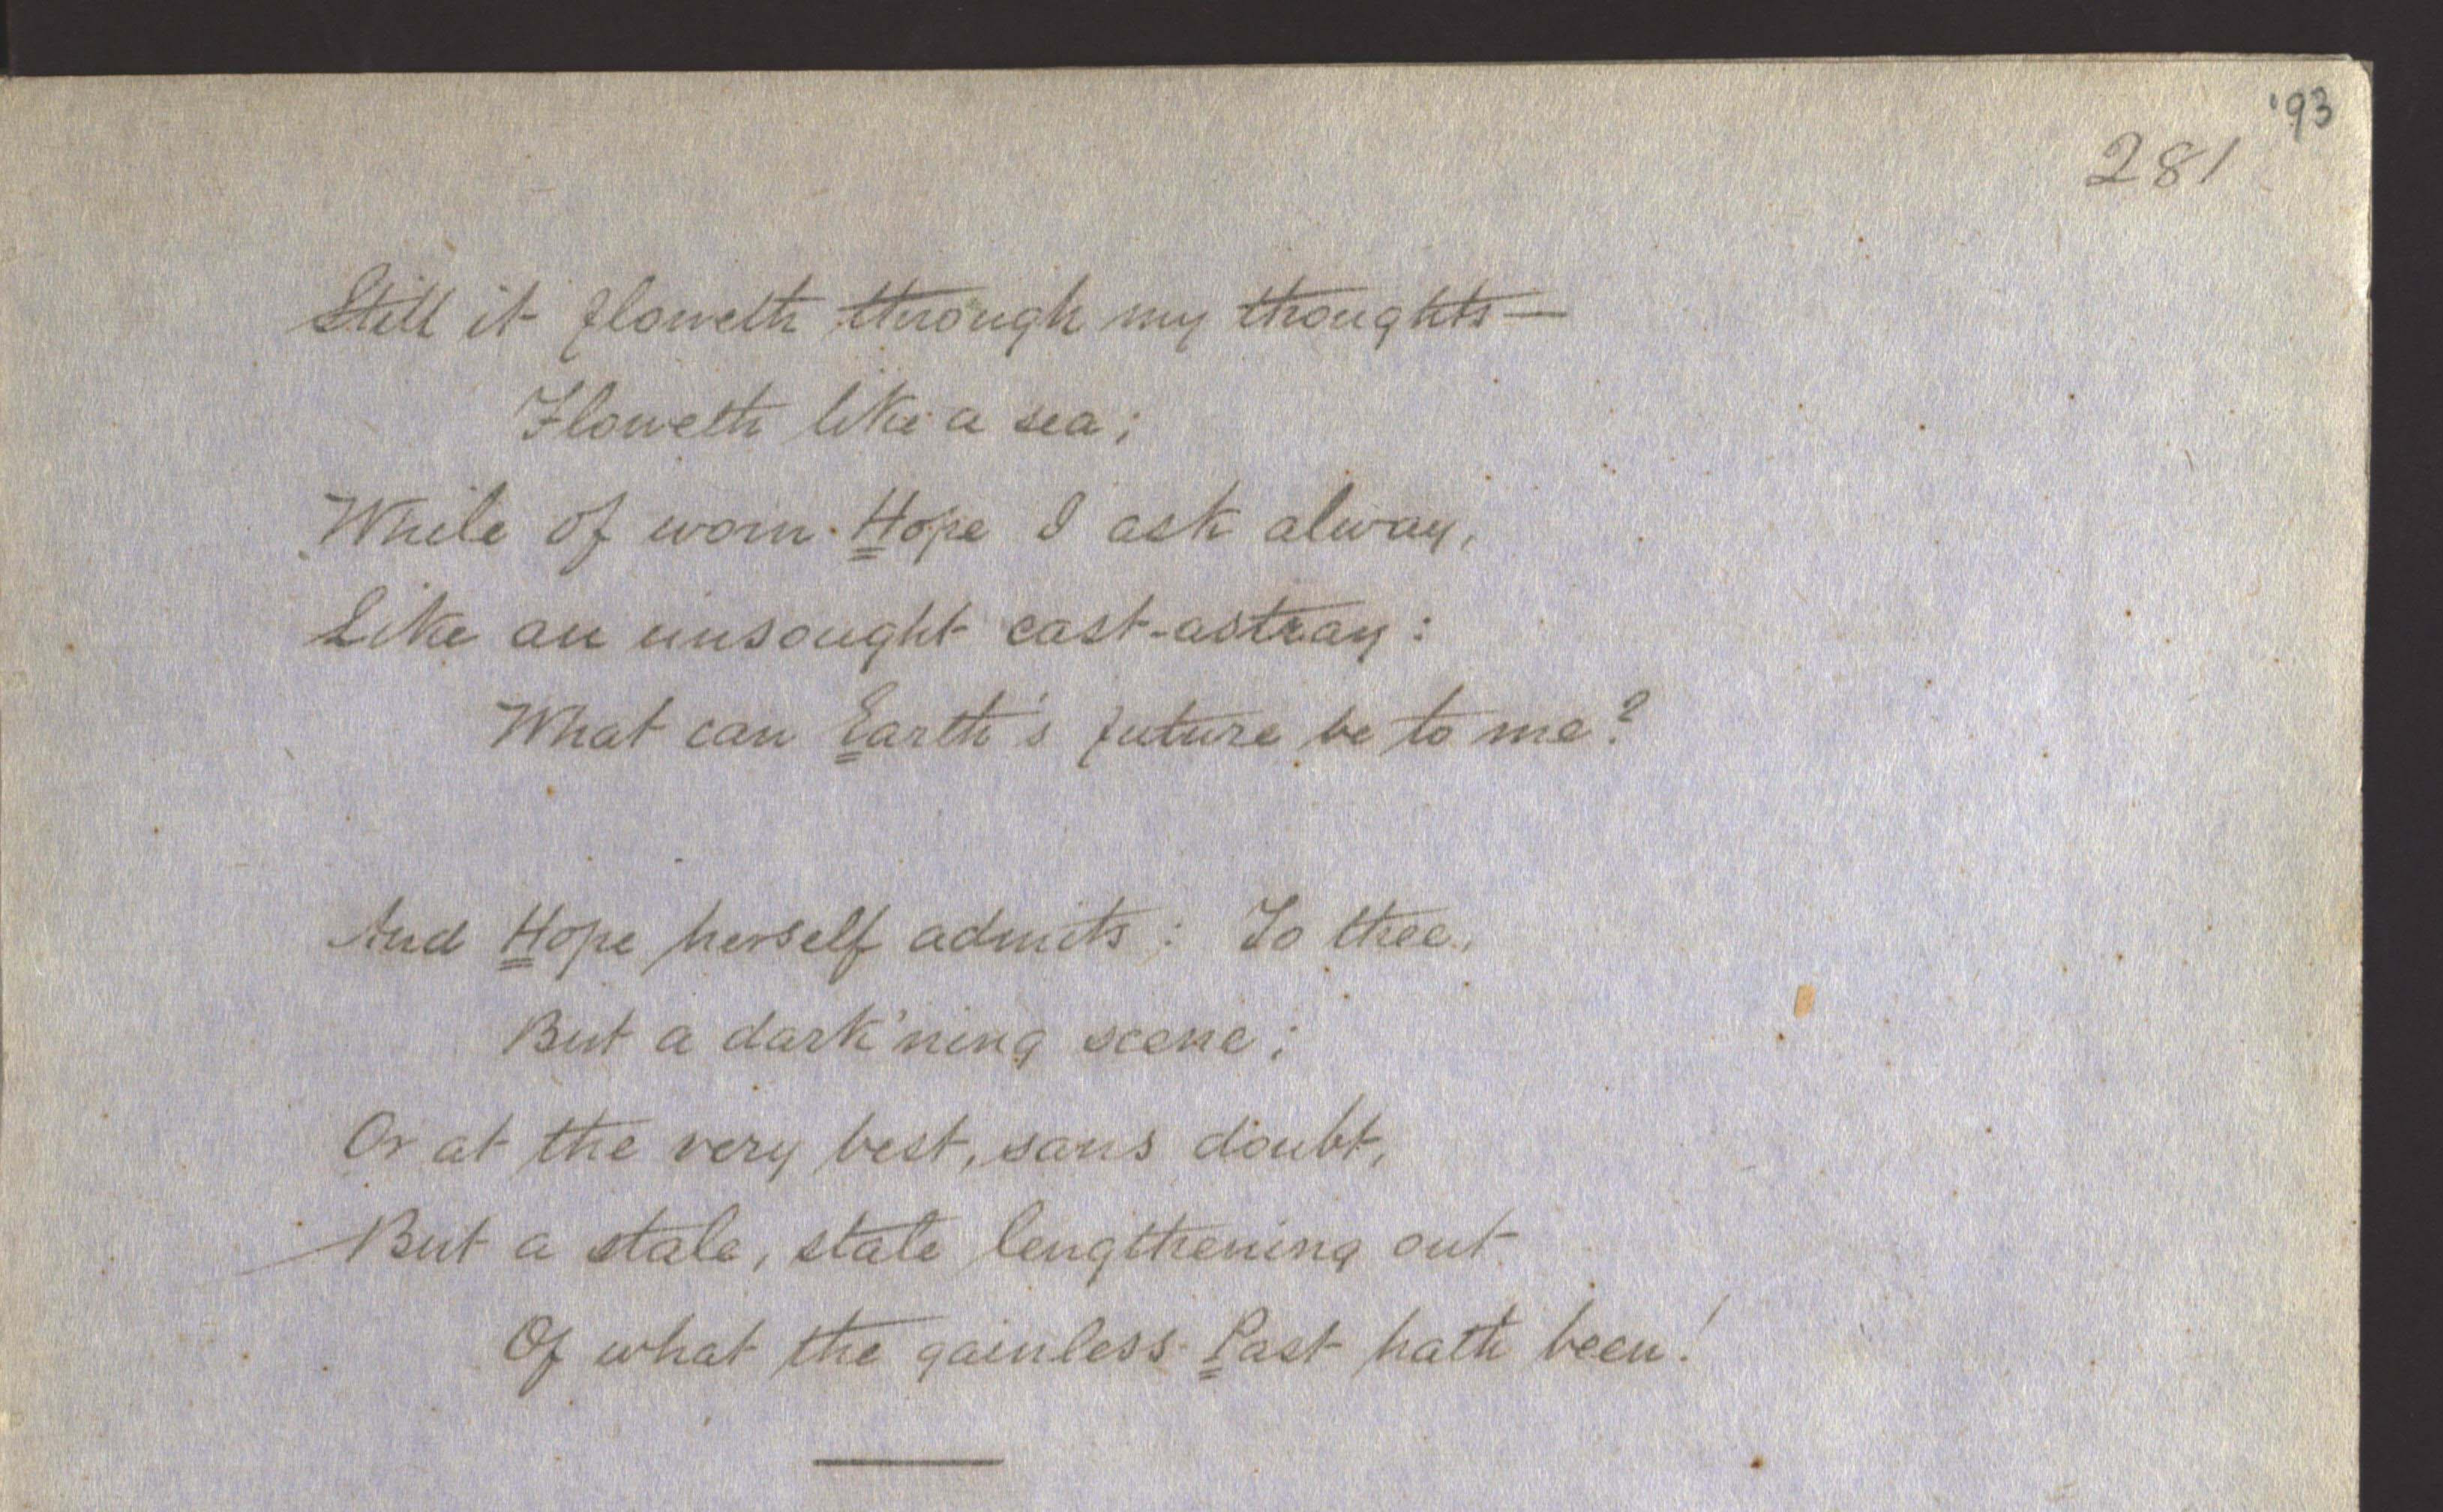 '93
281
Still it floweth through my thoughts—
Floweth like a sea;
While of worn Hope I ask alway,
Like an unsought cast-astray:
What can Earth's future be to me?
And Hope herself admits: To thee,
But a dark'ning scene;
Or at the very best, sans doubt,
But a stale, stale lengthening out
Of what the gainless Past hath been!